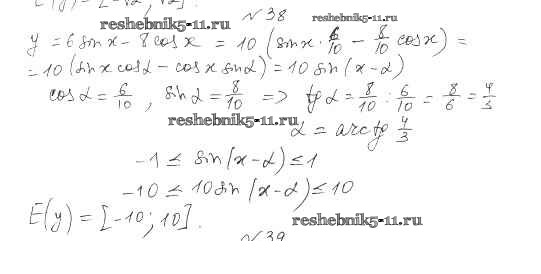 E(y) = [-√2, √2].
№38
reshebnik5-11.ru
reshebnik5-11.ru
y = 6 sin x - 8 cos x = 10 (sin x · 6/10 - 8/10 cos x) =
= 10 (sin x cos α - cos x sin α) = 10 sin (x - α)
cos α = 6/10 , sin α = 8/10 => tg α = 8/10 : 6/10 = 8/6 = 4/3
reshebnik5-11.ru
α = arctg 4/3
-1 ≤ sin (x - α) ≤ 1
-10 ≤ 10 sin (x - α) ≤ 10
E(y) = [-10; 10].
reshebnik5-11.ru
№39